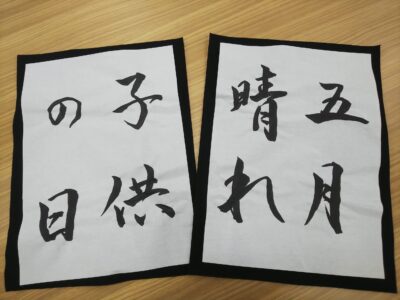 五月
晴れ
子供
の日